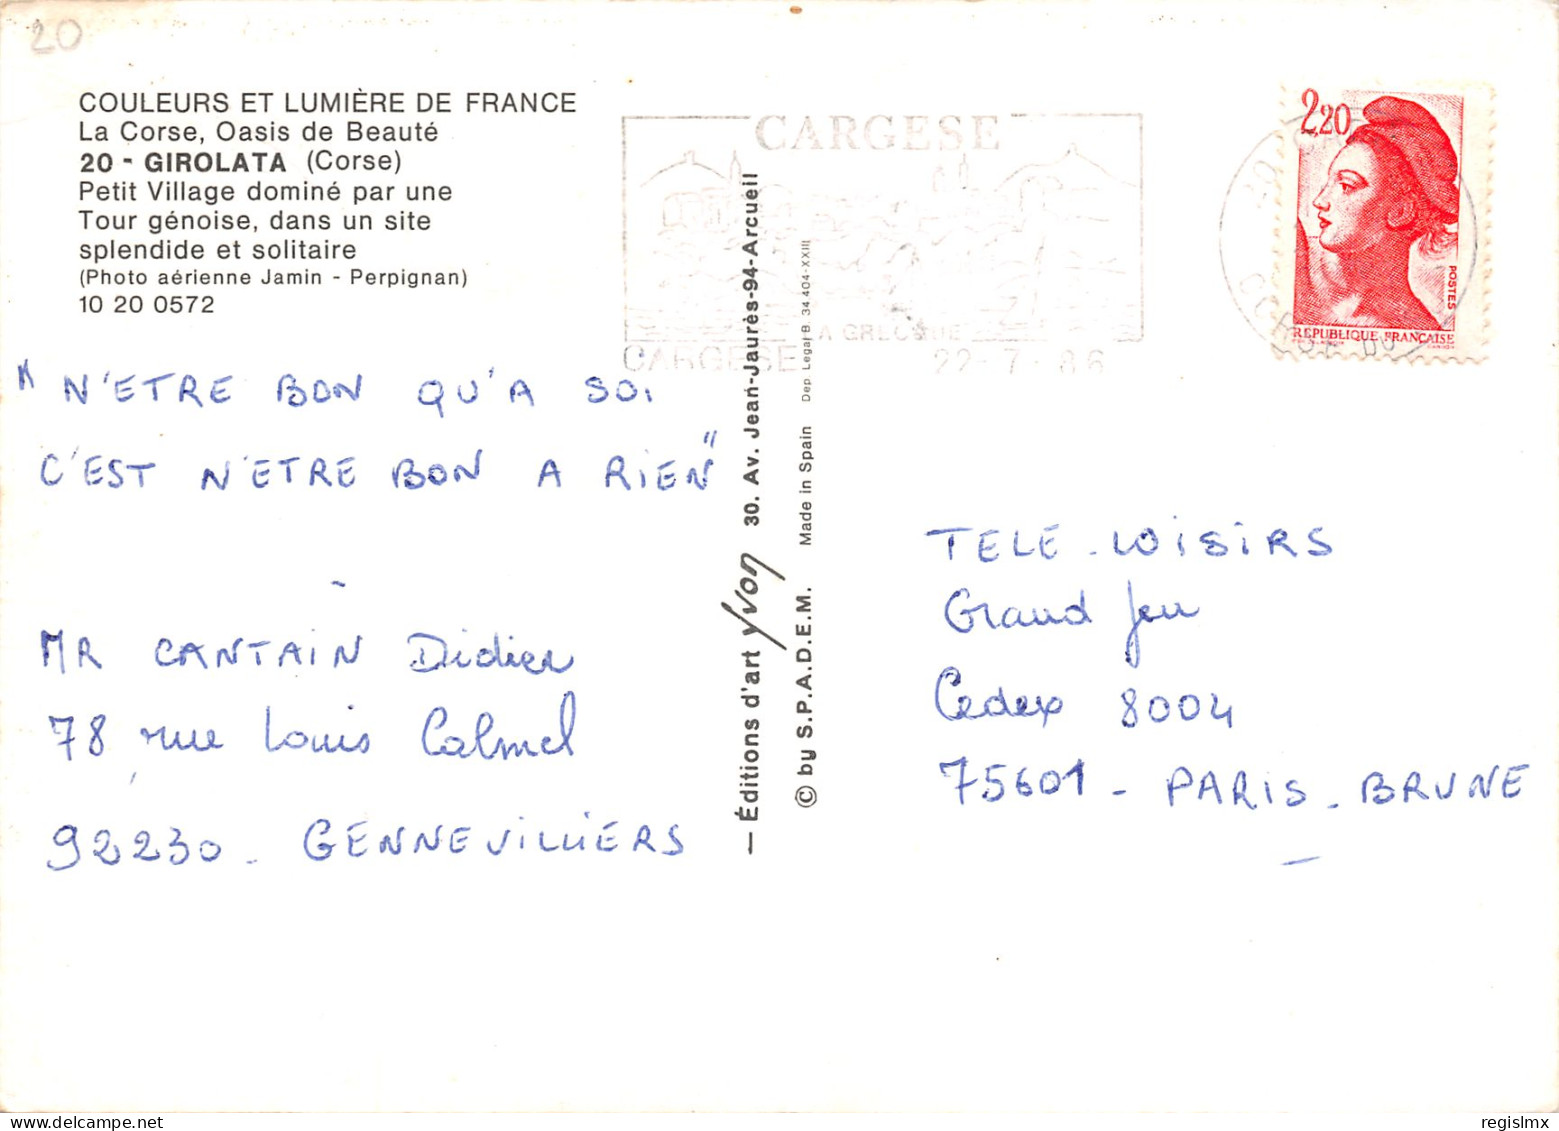 20
COULEURS ET LUMIÈRE DE FRANCE
La Corse, Oasis de Beauté
20 - GIROLATA (Corse)
Petit Village dominé par une
Tour génoise, dans un site
splendide et solitaire
(Photo aérienne Jamin - Perpignan)
10 20 0572
"N'ETRE BON QU'A SOI
C'EST N'ETRE BON A RIEN"
MR CANTAIN Didier
78 rue Louis Calmel
92230 - GENNEVILLIERS
— Éditions d'art Yvon 30. Av. Jean-Jaurès-94-Arcueil
© by S.P.A.D.E.M. Made in Spain Dep. Legal B. 34.404-XXIII
CARGESE
LA GRECQUE
CARGESE 22-7-86
2,20
POSTES
REPUBLIQUE FRANÇAISE
TELE-LOISIRS
Grand Jeu
Cedex 8004
75601 - PARIS - BRUNE
regislmx